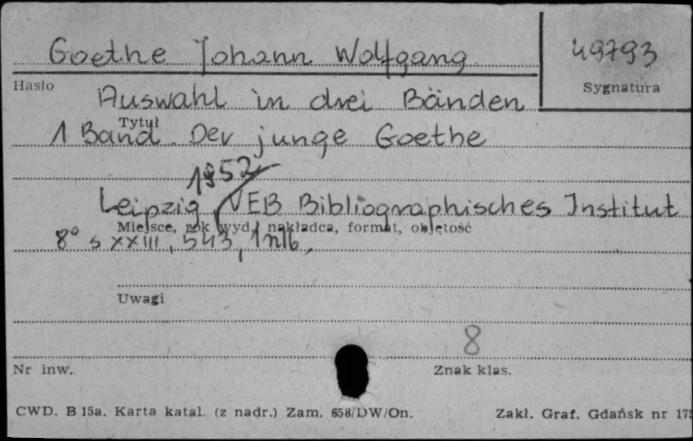 Goethe Johann Wolfgang
49793
Hasło
Sygnatura
Auswahl in drei Bänden
Tytuł
1 Band. Der junge Goethe
1952
Leipzig VEB Bibliographisches Institut
Miejsce, rok wyd., nakładca, format, objętość
8° s XXIII, 543, 1 nlb,
Uwagi
8
Nr inw.
Znak klas.
CWD. B 15a. Karta katal. (z nadr.) Zam. 658/DW/On.
Zakł. Graf. Gdańsk nr